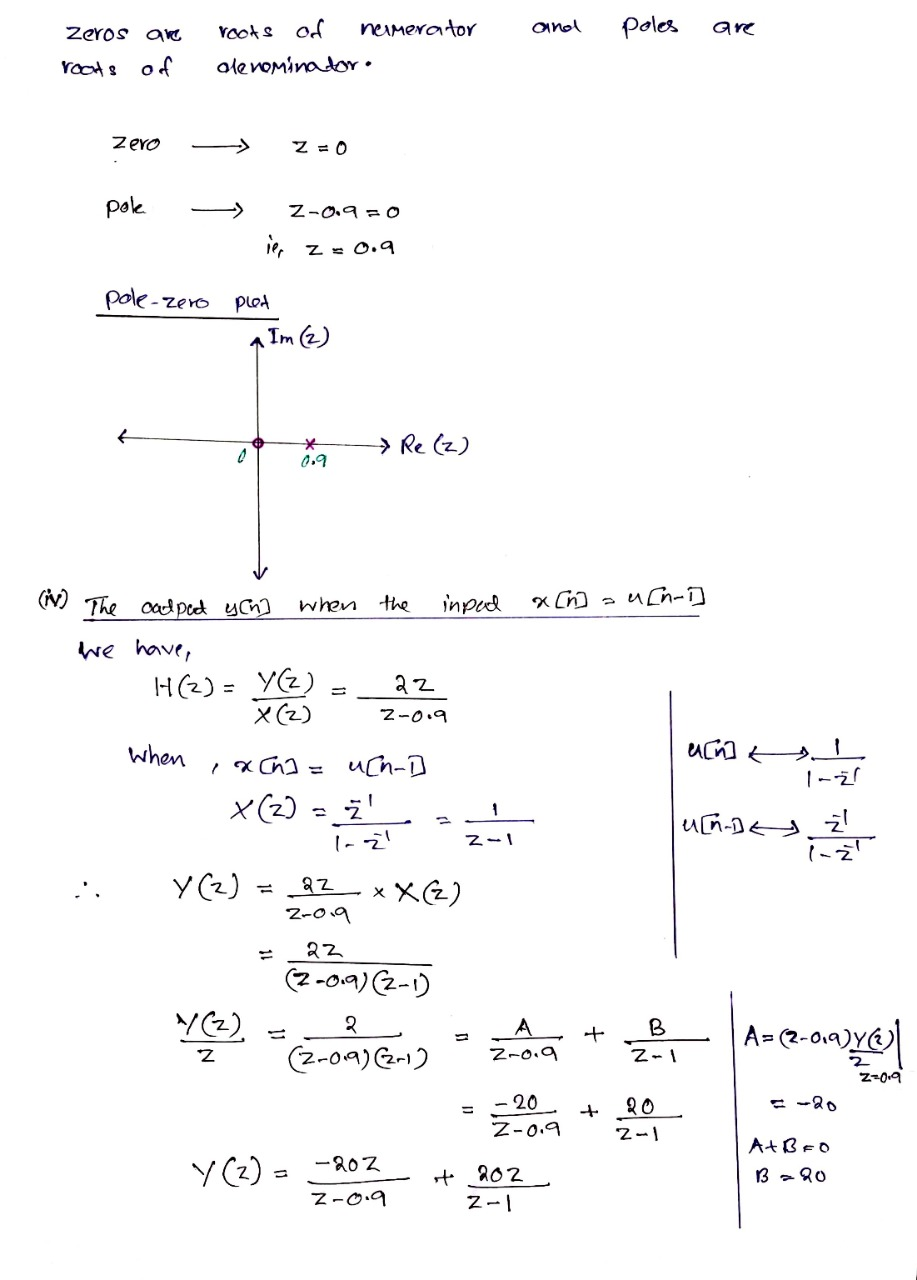 zeros are roots of numerator and poles are
roots of denominator.
zero → z = 0
pole → z-0.9 = 0
ie, z = 0.9
pole-zero plot
Im(z)
Re(z)
0
0.9
(iv) The output y[n] when the input x[n] = u[n-1]
We have,
H(z) = Y(z)/X(z) = 2z/(z-0.9)
When, x[n] = u[n-1]
X(z) = z⁻¹/(1-z⁻¹) = 1/(z-1)
u[n] ↔ 1/(1-z⁻¹)
u[n-1] ↔ z⁻¹/(1-z⁻¹)
∴ Y(z) = 2z/(z-0.9) × X(z)
= 2z/((z-0.9)(z-1))
Y(z)/z = 2/((z-0.9)(z-1)) = A/(z-0.9) + B/(z-1)
= -20/(z-0.9) + 20/(z-1)
Y(z) = -20z/(z-0.9) + 20z/(z-1)
A = (z-0.9) Y(z)/z | z=0.9
= -20
A+B=0
B = 20